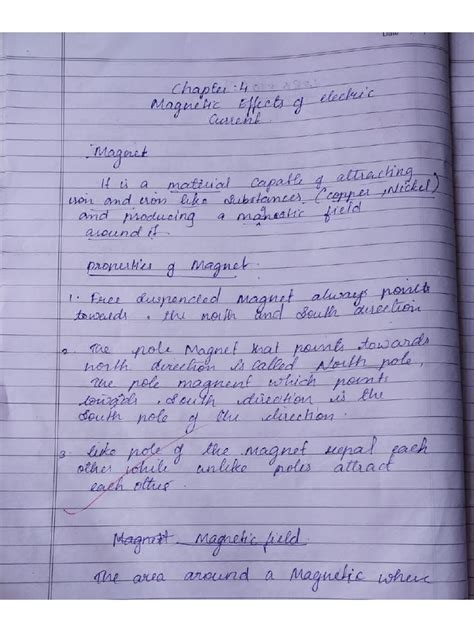 Date
Chapter : 4
Magnetic Effects of electric
Current
Magnet
It is a material capable of attracting
iron and iron like substances (copper, Nickel)
and producing a magnetic field
around it
properties of Magnet
1. Free suspended Magnet always points
towards the north and south direction
2. The pole Magnet that points towards
north direction is called North pole,
The pole magnent which points
towards south direction is the
south pole of the direction.
3. like pole of the magnet repal each
other while unlike poles attract
each other.
Magnet Magnetic field
The area around a Magnetic where